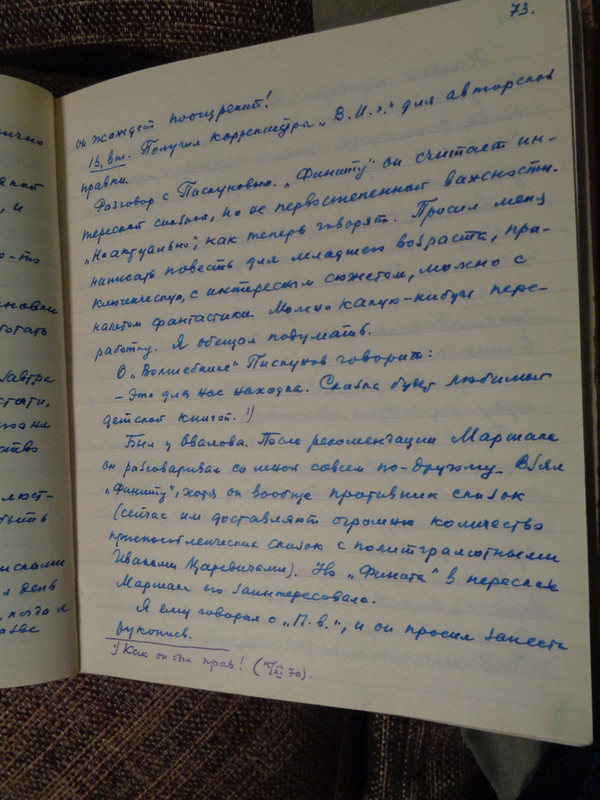 73.
он жаждет поощрений!
13, вт. Получил корректуры "В. И. г." для авторской
правки.
Разговор с Пискуновым. "Финиту" он считает ин-
тересной сказкой, но не первостепенной важности.
"Неактуально", как теперь говорят. Просил меня
написать повесть для младшего возраста, при-
ключенческую, с интересным сюжетом, можно с
налетом фантастики. Можно какую-нибудь пере-
работку. Я обещал подумать.
О "Волшебнике" Пискунов говорит:
- Это для нас находка. Сказка будет любимой
детской книгой. 1)
Был у Овалова. После рекомендации Маршака
он разговаривал со мной совсем по-другому. Взял
"Финиту", хотя он вообще противник сказок
(сейчас им доставляют огромное количество
приспособленческих сказок с политграмотными
Иванами Царевичами). Но "Финита" в пересказе
Маршака его заинтересовала.
Я ему говорил о "П. в.", и он просил занести
рукопись.
1) Как он был прав! (/XI 70).
ично
и
о-то
ановки
ботать
Завтра
стати,
ство
люст-
быть
писании
день
когда я